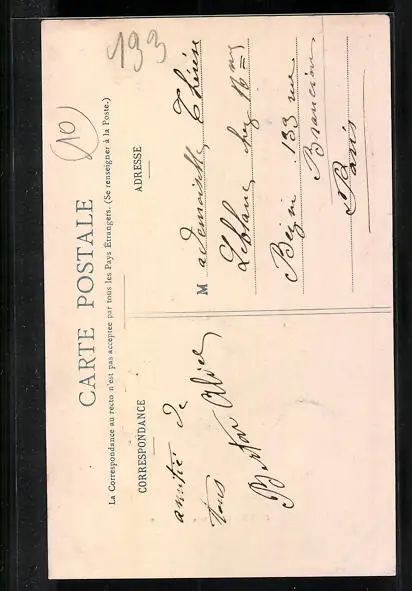 193
10
CARTE POSTALE
La Correspondance au recto n'est pas acceptée par tous les Pays Étrangers. (Se renseigner à la Poste.)
CORRESPONDANCE
amitié de
tous
Alice
ADRESSE
Mademoiselle Thérèse
Leblanc chez Mme
133 rue
Brancion
Paris